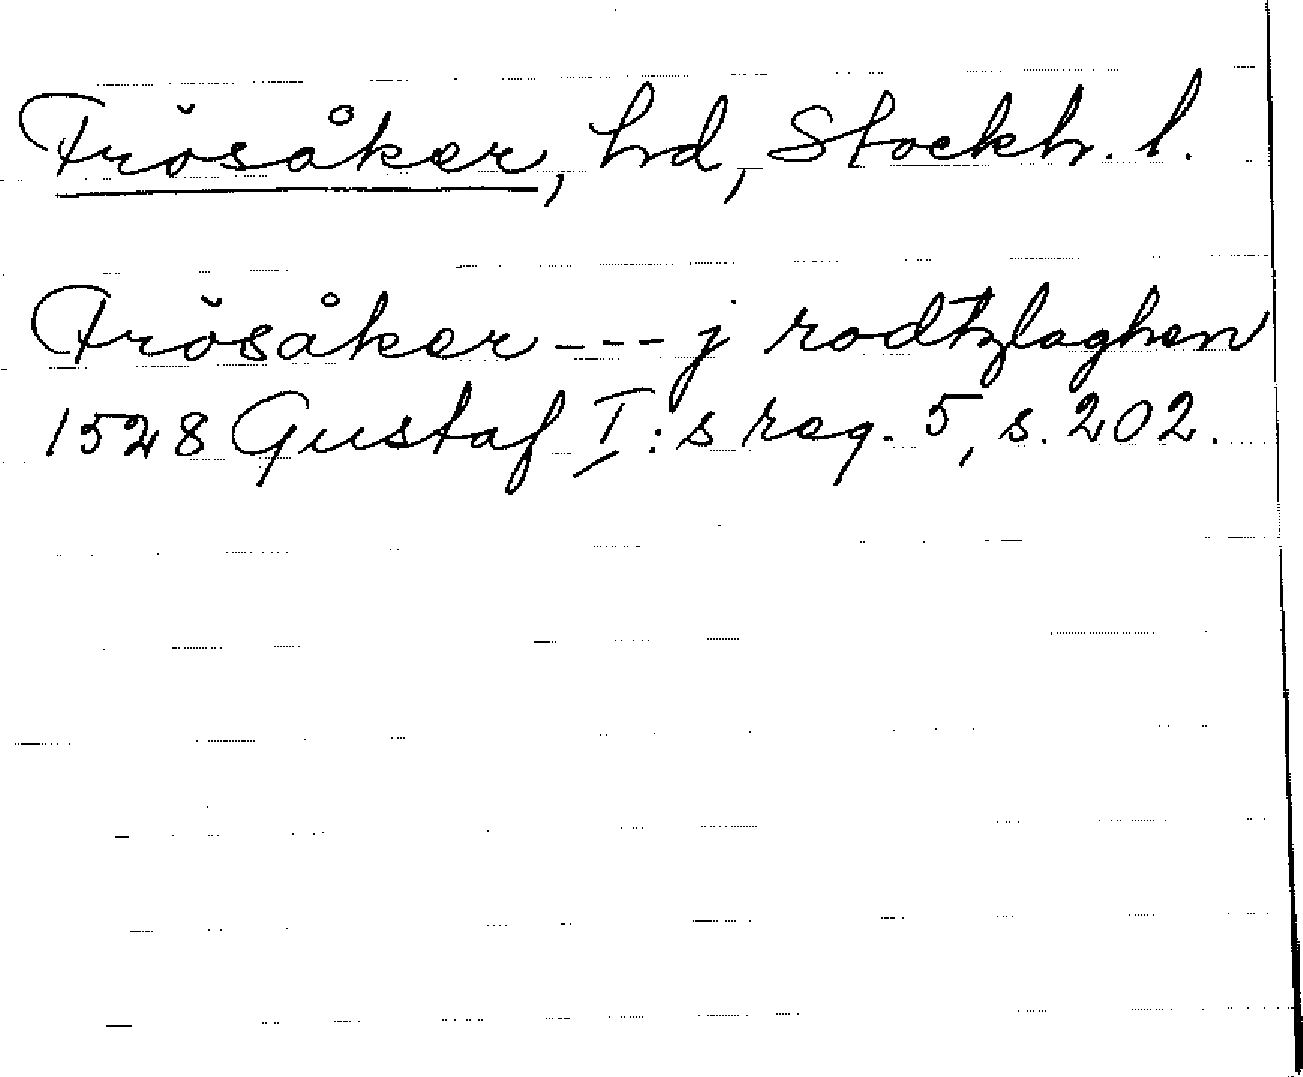 Frösåker, hd, Stockh. l.
Frösåker --- j rodtzlaghen
1528 Gustaf I:s reg. 5, s. 202.